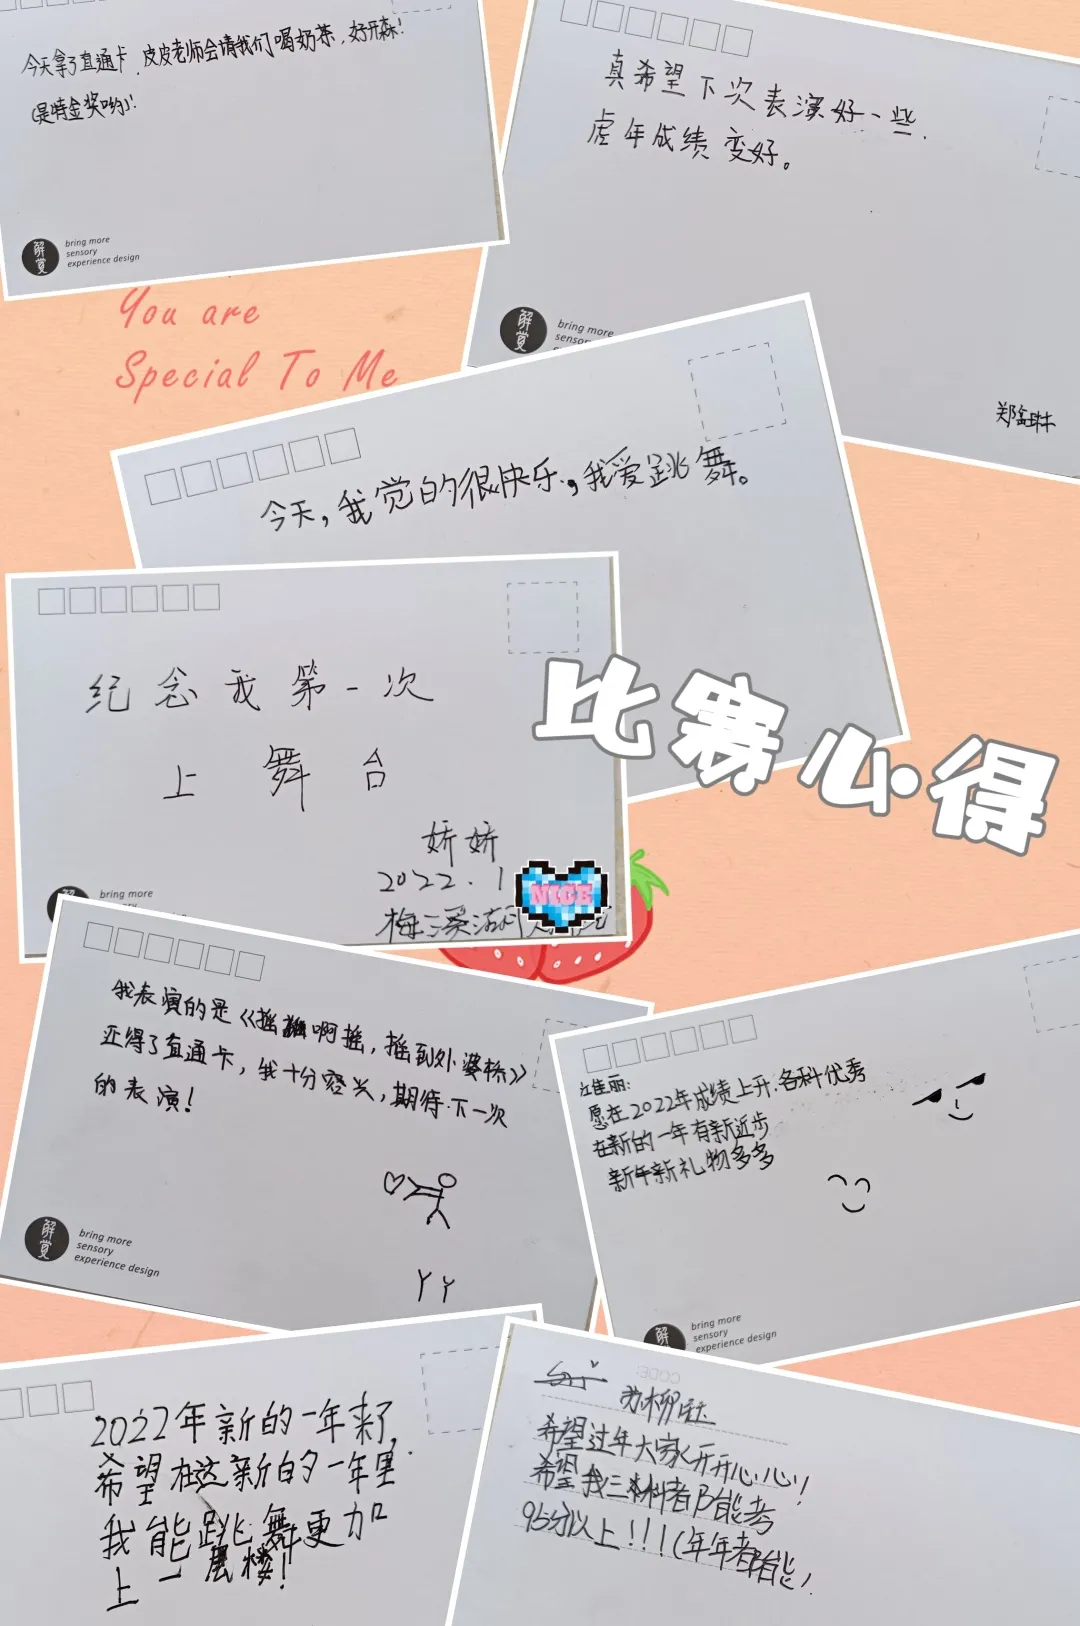 今天拿了直通卡,皮皮老师会请我们喝奶茶,好开森!
(是特金奖哟)!
解賞
bring more
sensory
experience design
真希望下次表演好一些.
虎年成绩变好。
解賞
bring more
郑
You are
Special To Me
今天,我觉的很快乐,我爱跳舞。
纪念我第一次
上舞台
娇娇
2022.1
梅溪湖
NICE
bring more
比赛心得
我表演的是《摇摇啊摇,摇到外婆桥》
还得了直通卡,我十分容兴,期待下一次
的表演!
YY
解賞
bring more
sensory
experience design
江佳丽:
愿在2022年成绩上升.各科优秀
在新的一年有新近步
新年新礼物多多
bring more
sensory
experience design
2022年新的一年来了,
希望在这新的一年里
我能跳舞更加
上一层楼!
苏柳钰
希望过年大家开开心心!
希望我三科都能考
95分以上!!!(年年都能!